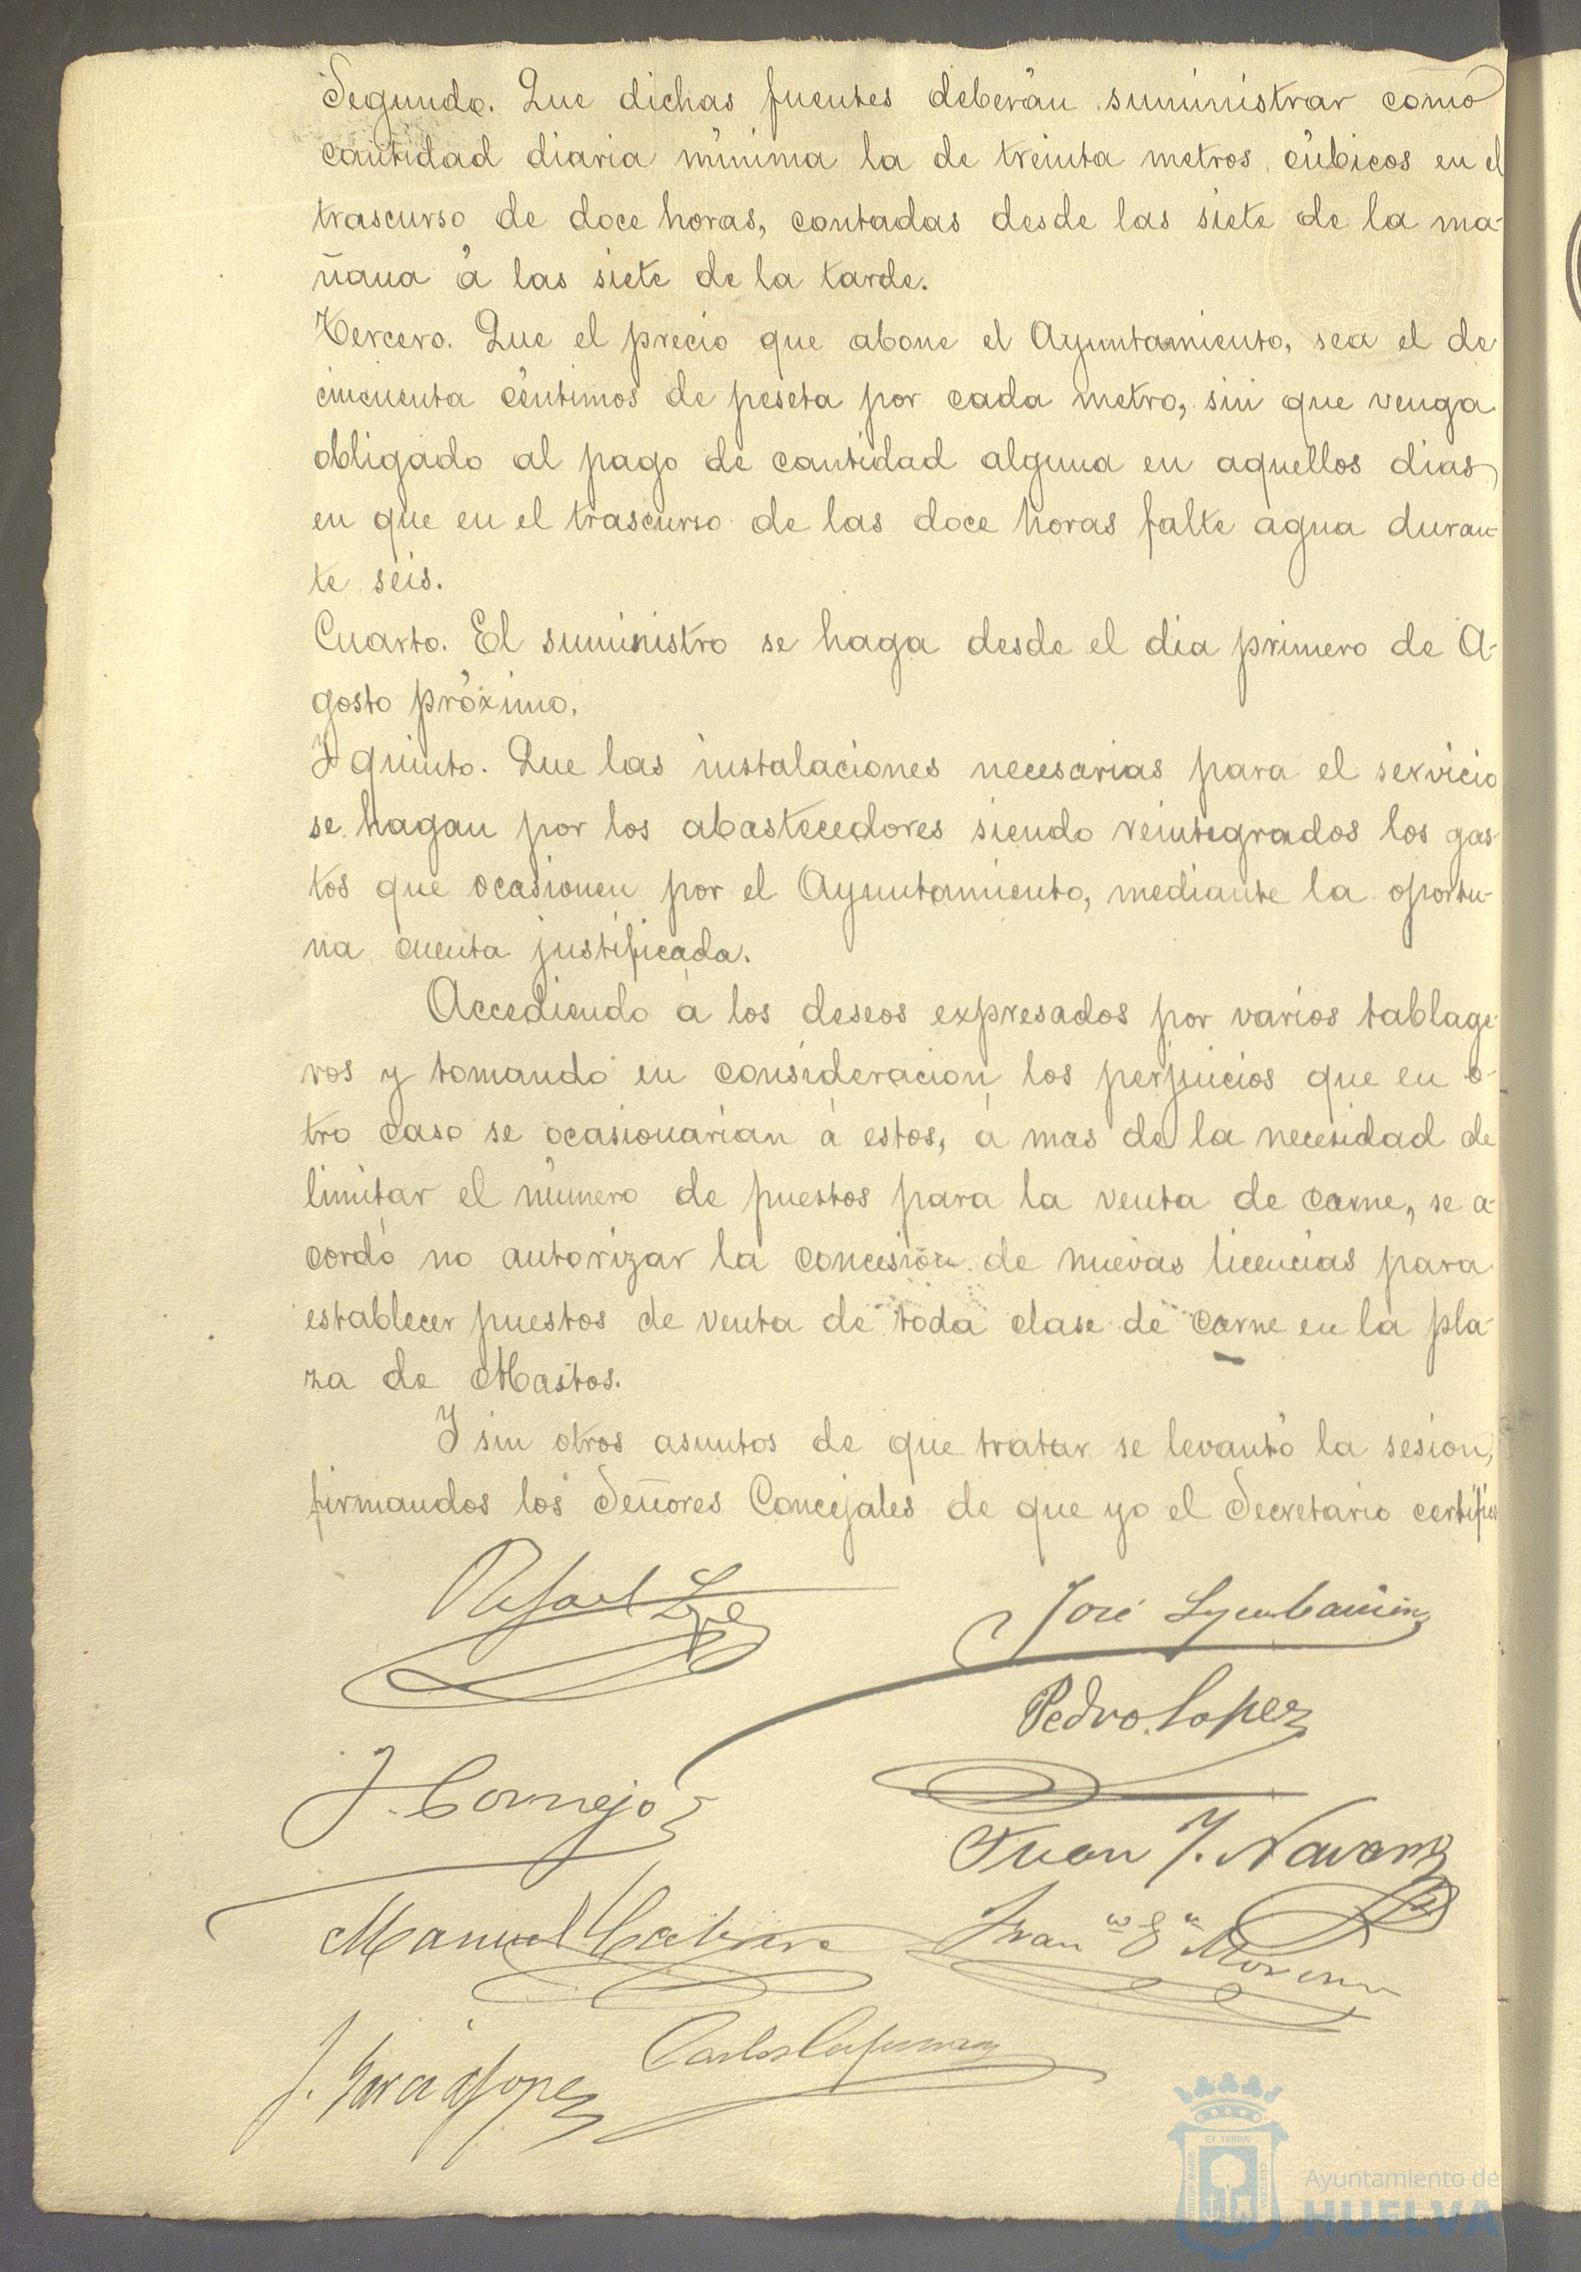 Segundo. Que dichas fuentes deberán suministrar como
cantidad diaria mínima la de treinta metros cúbicos en el
trascurso de doce horas, contadas desde las siete de la ma-
ñana á las siete de la tarde.
Tercero. Que el precio que abone el Ayuntamiento, sea el de
cincuenta céntimos de peseta por cada metro, sin que venga
obligado al pago de cantidad alguna en aquellos dias
en que en el trascurso de las doce horas falte agua duran-
te seis.
Cuarto. El suministro se haga desde el dia primero de A-
gosto próximo.
Y quinto. Que las instalaciones necesarias para el servicio
se hagan por los abastecedores siendo reintegrados los gas-
tos que ocasionen por el Ayuntamiento, mediante la oportu-
na cuenta justificada.
Accediendo á los deseos expresados por varios tablage-
ros y tomando en consideracion los perjuicios que en o-
tro caso se ocasionarian á estos, á mas de la necesidad de
limitar el número de puestos para la venta de carne, se a-
cordó no autorizar la concesión de nuevas licencias para
establecer puestos de venta de toda clase de carne en la pla-
za de Abastos.
Y sin otros asuntos de que tratar se levantó la sesion,
firmandos los Señores Concejales de que yo el Secretario certifico
Rafael
José
Pedro Lopez
J. Cornejo
Juan J. Navarro
Manuel
Fran^co G^a Moreno
J. Garcia Lopez
Carlos
ET TERRA
PORTUS MARIS
CUSTODIA
Ayuntamiento de
HUELVA